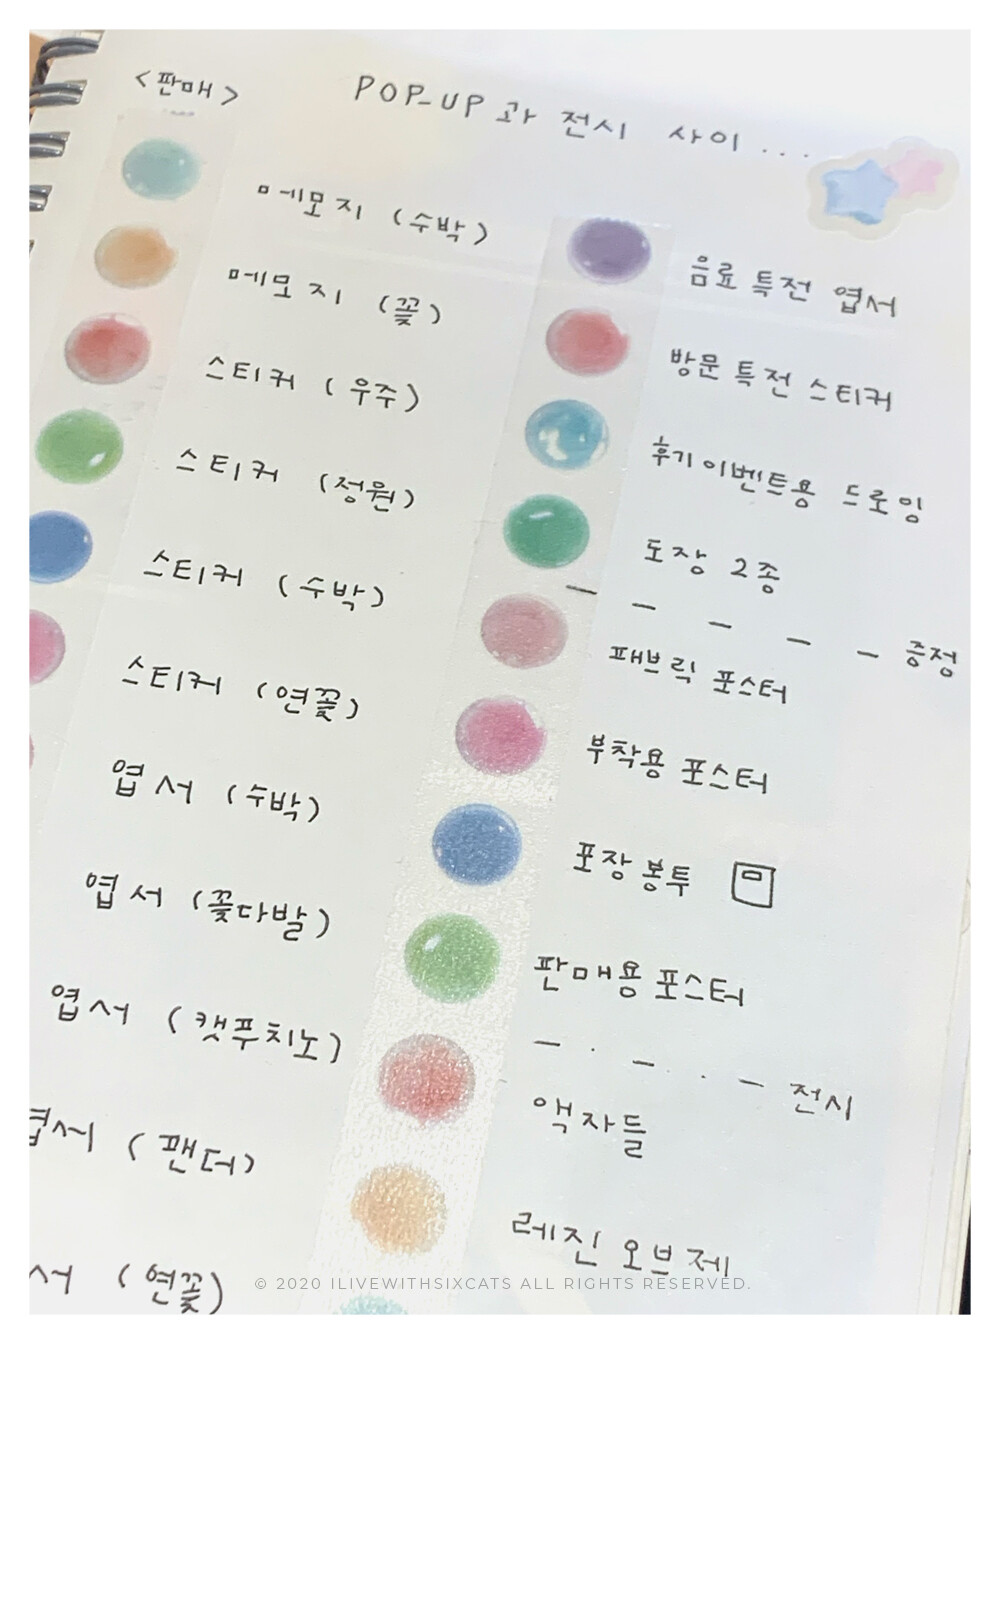 <판매>
POP-UP과 전시 사이...
메모지 (수박)
메모지 (꽃)
스티커 (우주)
스티커 (정원)
스티커 (수박)
스티커 (연꽃)
엽서 (수박)
엽서 (꽃다발)
엽서 (캣푸치노)
엽서 (팬더)
서 (연꽃)
음료 특전 엽서
방문 특전 스티커
후기이벤트용 드로잉
도장 2종
— — — — — 증정
패브릭 포스터
부착용 포스터
포장봉투
판매용 포스터
— · — · — 전시
액자들
레진 오브제
© 2020 ILIVEWITHSIXCATS ALL RIGHTS RESERVED.